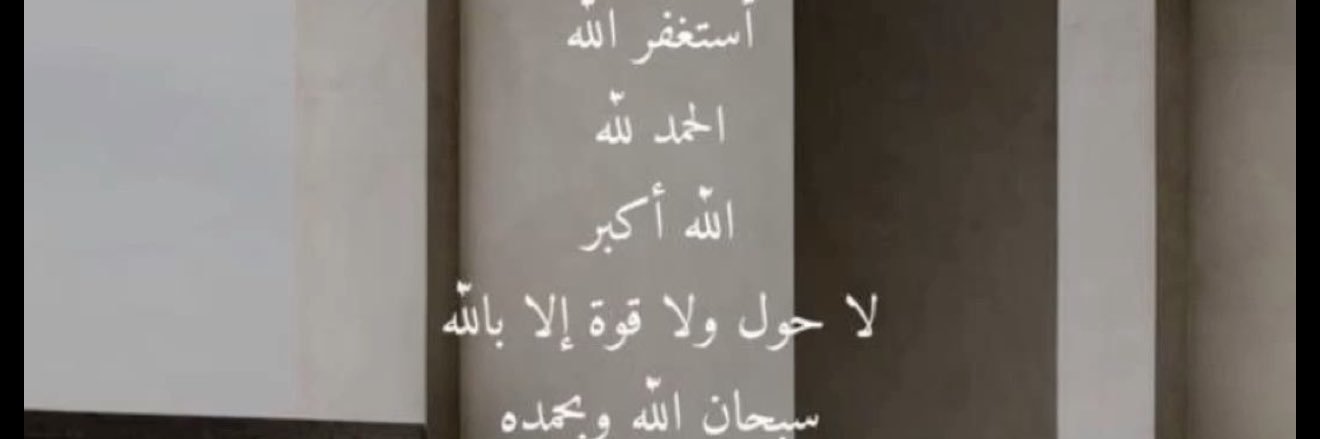 أستغفر الله
الحمد لله
الله أكبر
لا حول ولا قوة إلا بالله
سبحان الله وبحمده